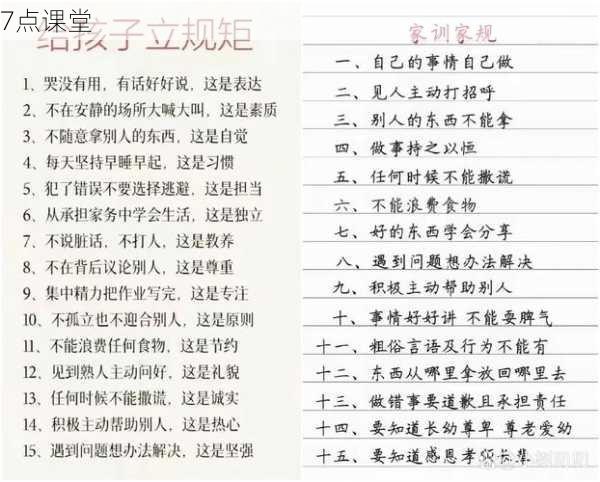 7点课堂
给孩子立规矩
1、哭没有用，有话好好说，这是表达
2、不在安静的场所大喊大叫，这是素质
3、不随意拿别人的东西，这是自觉
4、每天坚持早睡早起，这是习惯
5、犯了错误不要选择逃避，这是担当
6、从承担家务中学会生活，这是独立
7、不说脏话，不打人，这是教养
8、不在背后议论别人，这是尊重
9、集中精力把作业写完，这是专注
10、不孤立也不迎合别人，这是原则
11、不能浪费任何食物，这是节约
12、见到熟人主动问好，这是礼貌
13、任何时候不能撒谎，这是诚实
14、积极主动帮助别人，这是热心
15、遇到问题想办法解决，这是坚强
家训家规
一、自己的事情自己做
二、见人主动打招呼
三、别人的东西不能拿
四、做事持之以恒
五、任何时候不能撒谎
六、不能浪费食物
七、好的东西学会分享
八、遇到问题想办法解决
九、积极主动帮助别人
十、事情好好讲 不能耍脾气
十一、粗俗言语及行为不能有
十二、东西从哪里拿放回哪里去
十三、做错事要道歉且承担责任
十四、要知道长幼尊卑 尊老爱幼
十五、要知道感恩孝顺长辈